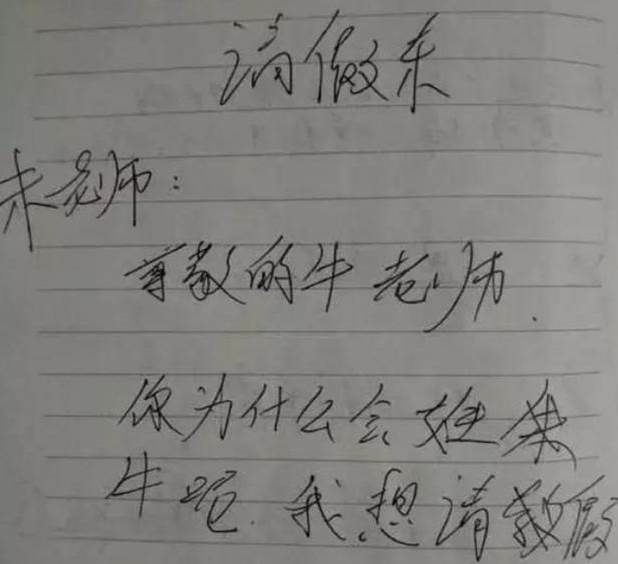 请假条
朱老师：
尊敬的牛老师.
你为什么会
牛呢.我想请假